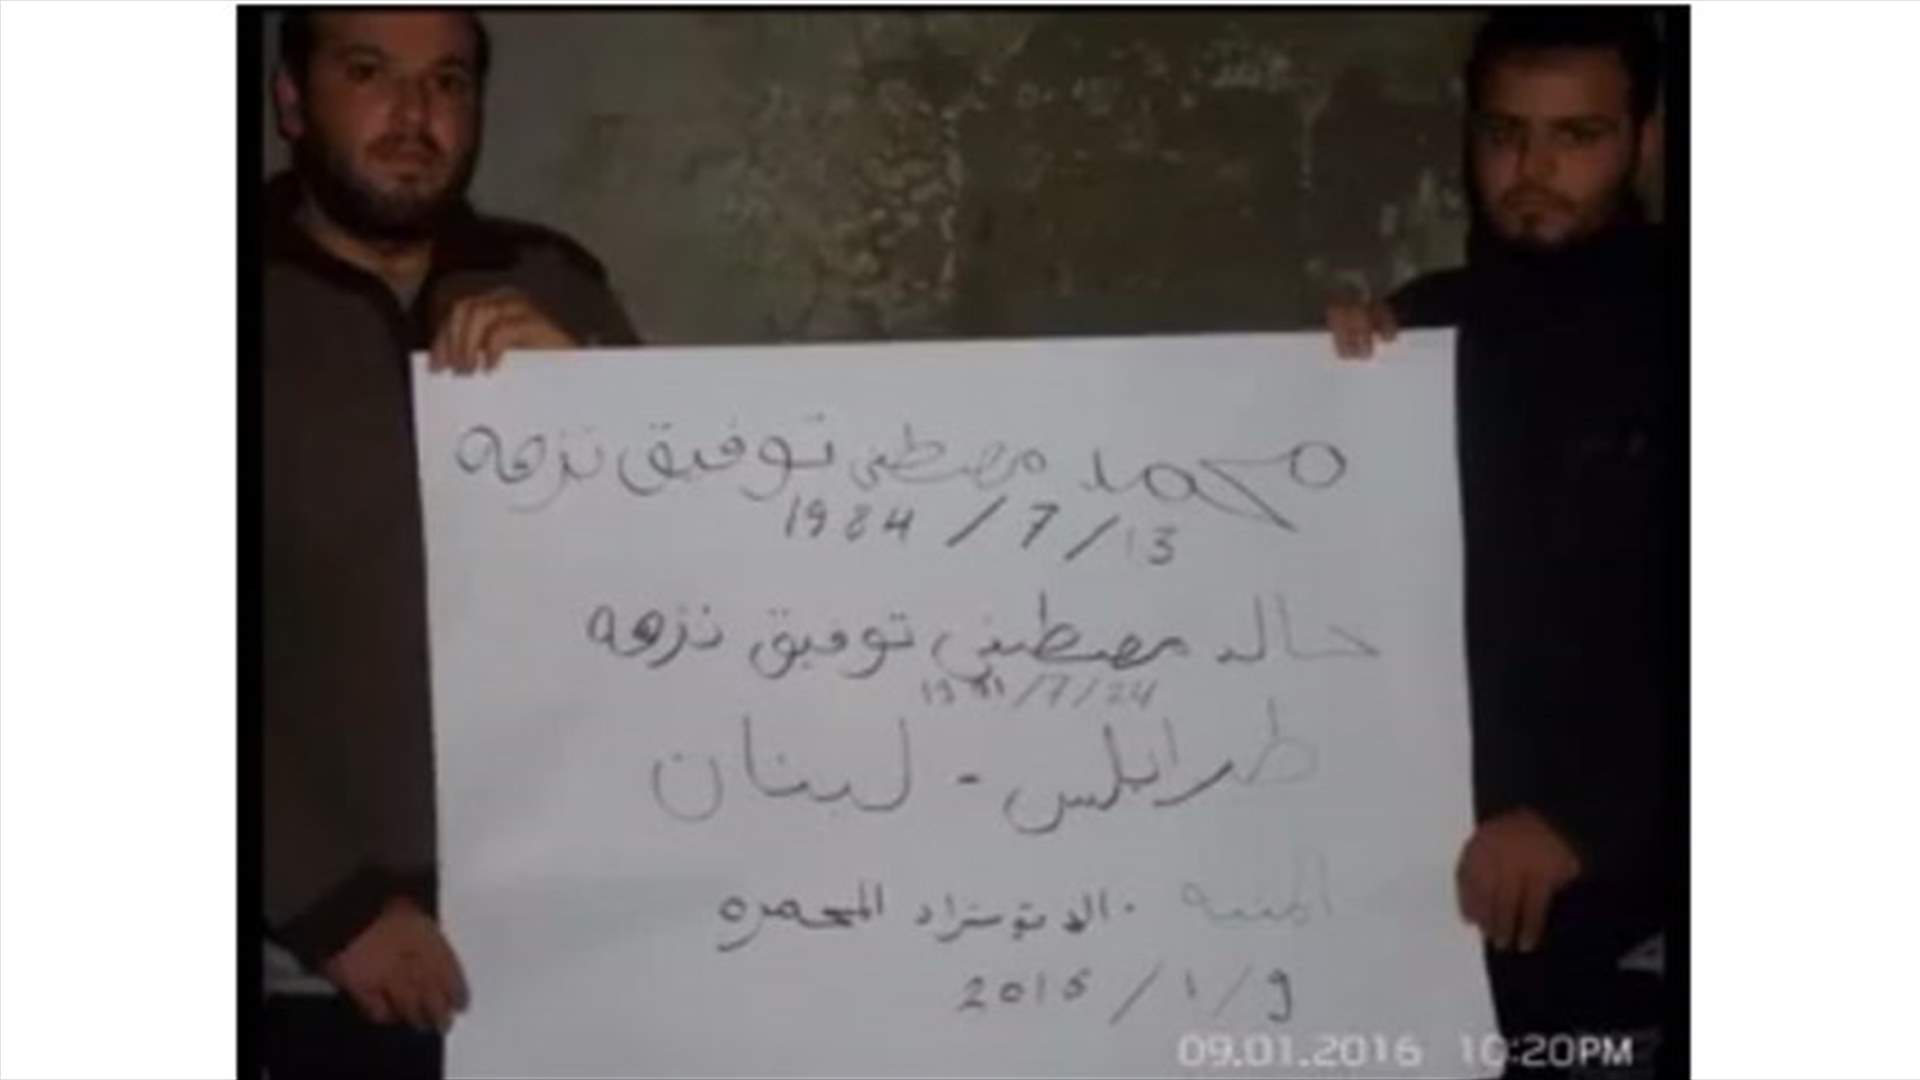 محمد مصطفى توفيق نزهه
1984/7/13
خالد مصطفى توفيق نزهه
1991/7/24
طرابلس - لبنان
المنيه - الاوتوستراد المحمره
2016/1/9
09.01.2016 10:20PM